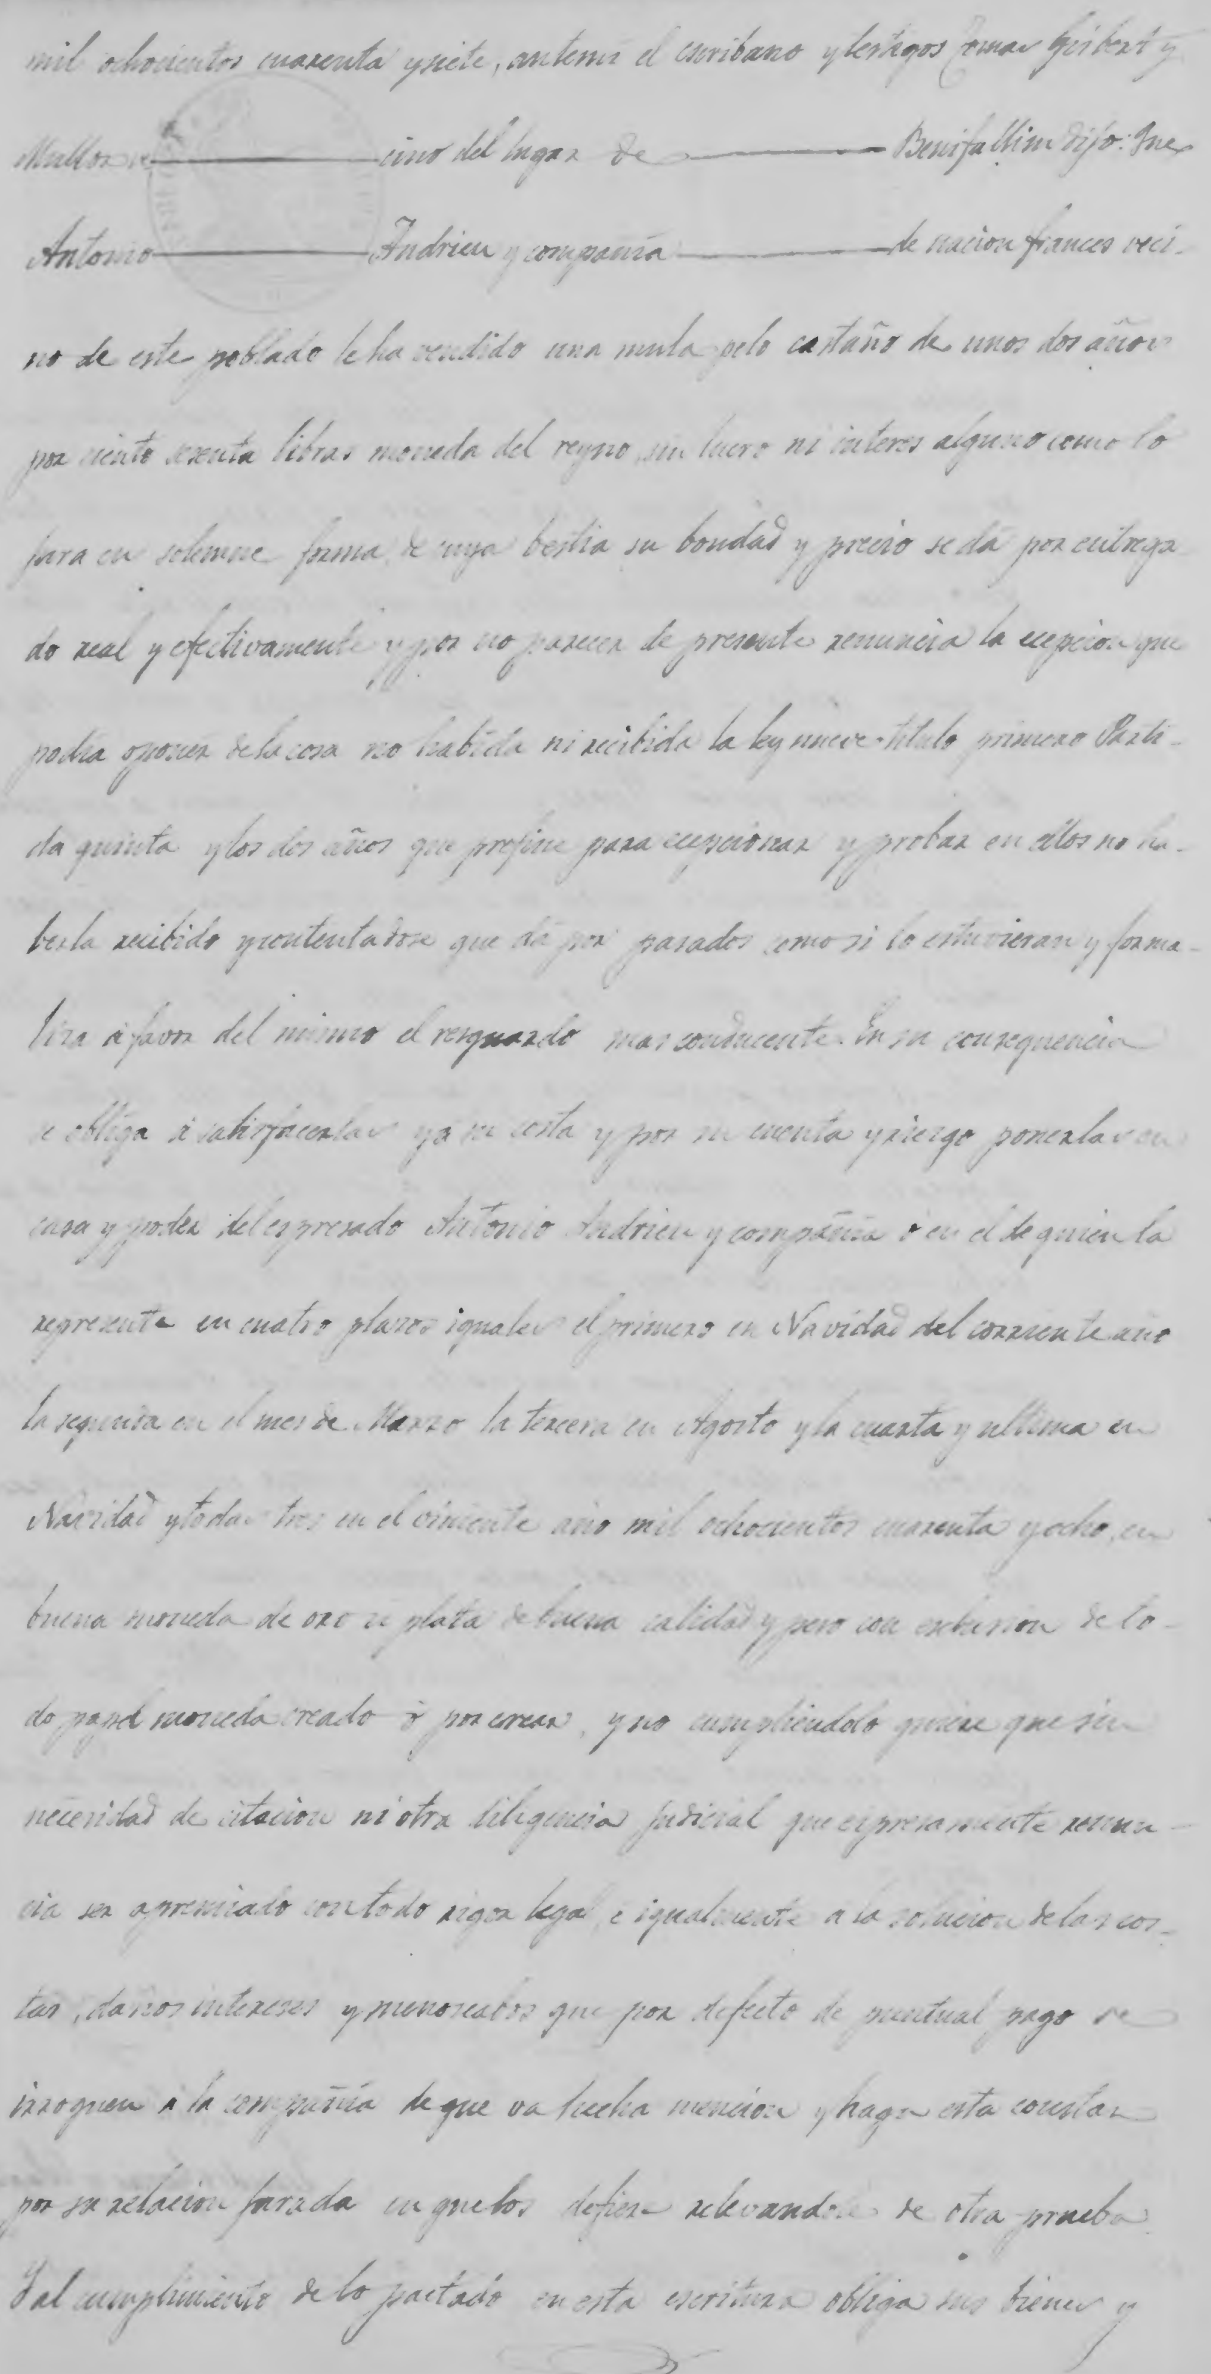 mil ochocientos cuarenta y siete, ante mi el escribano y testigos Tomas Gisbert y
Mullor ve cino del lugar de Benifallim dijo: Que
Antonio Andrieu y compañia de nacion frances veci-
no de este poblado le ha vendido una mula pelo castaño de unos dos años
por ciento sesenta libras moneda del reyno, sin lucro ni interes alguno como lo
jura en solemne forma, de cuya bestia su bondad y precio se dá por entrega
do real y efectivamente y por no parecer de presente renuncia la ecepcion que
podria oponer de la cosa no habida ni recibida la ley nueve titulo primero Parti-
da quinta y los dos años que prefine para ecepcionar y probar en ellos no ha-
berla recibido y contentadose que dá por pasados como si lo estuvieran y forma-
liza á favor del mismo el resguardo mas conducente. En su consequencia
se obliga á satisfacerlas y a su costa y por su cuenta y riesgo ponerlas en
casa y poder del espresado Antonio Andrieu y compañia ó en el de quien la
represente en cuatro plazos iguales el primero en Navidad del corriente año
la segunda en el mes de Marzo la tercera en Agosto y la cuarta y ultima en
Navidad y todas tres en el viniente año mil ochocientos cuarenta y ocho, en
buena moneda de oro u plata de buena calidad y peso con esclusion de to-
do papel moneda creado ó por crear, y no cumpliendolo quiere que sin
necesidad de citacion ni otra diligencia judicial que espresamente renun-
cia ser apremiado con todo rigor legal, e igualmente a la solucion de las cos-
tas, daños intereses y menoscabos que por defecto de puntual pago se
irroguen á la compañia de que va hecha mencion y haga esta constar
por su relacion jurada en que los defiere relevandole de otra prueba.
Y al cumplimiento de lo pactado en esta escritura obliga sus bienes y